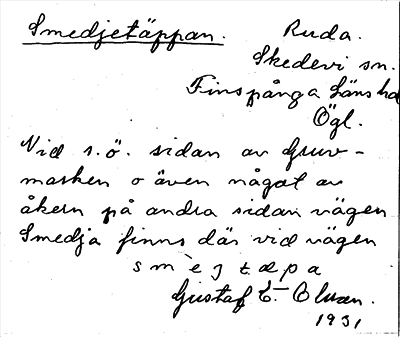 Smedjetäppan. Ruda.
Skedevi sn.
Finspånga läns hd
Ögl.
Vid s.ö. sidan av Gruv-
marken o även något av
åkern på andra sidan vägen
Smedja finns där vid vägen
smejtæpa
Gustaf E.
1931